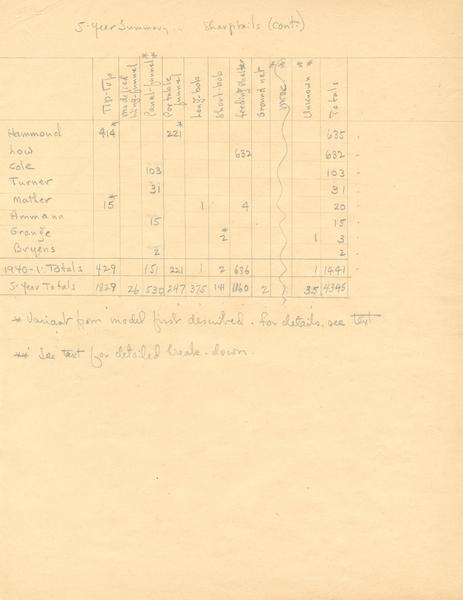 5-Year Summary... Sharptails (cont.)
Tip-Top Modified Wing-funnel Panel-funnel** Portable funnel Long-bob Short-bob feeding shelter Ground net * Misc Unknown** Totals
Hammond 414* 221* 635
Low 632 632
Cole 103 103
Turner 31 31
Mather 15* 1 4 20
Ammann 15 15
Grange 2* 1 3
Bruyens 2 2
1940-1 Totals 429 151 221 1 2 636 1 1441
5-Year Totals 1829 26 530 247 375 141 1160 2 35 4345
* Variant from model first described. For details, see text
** See text for detailed break-down.